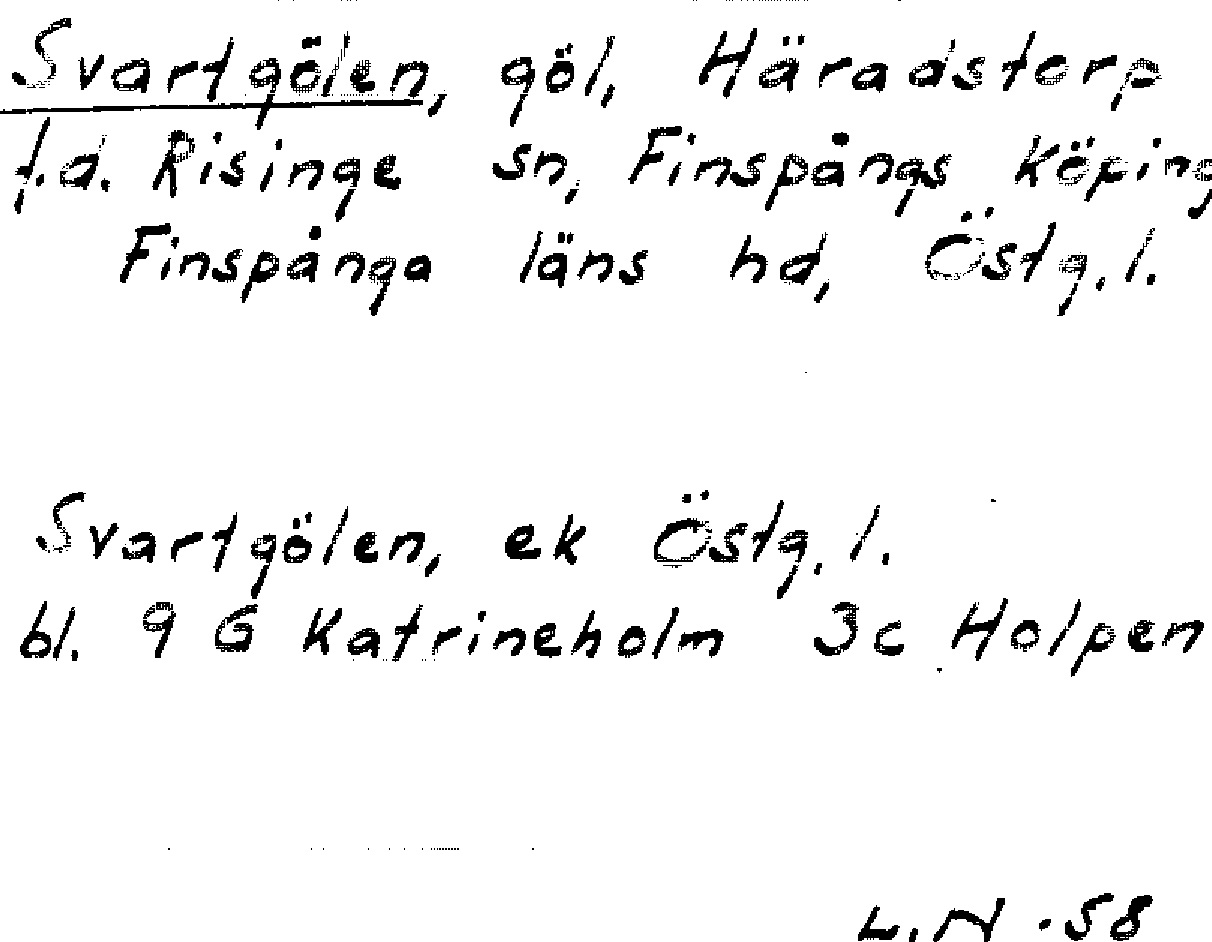 Svartgölen, göl, Häradstorp
f.d. Risinge sn, Finspångs köping
Finspånga läns hd, Östg. l.
Svartgölen, ek Östg. l.
bl. 9 G Katrineholm 3c Holpen
L. N. 58